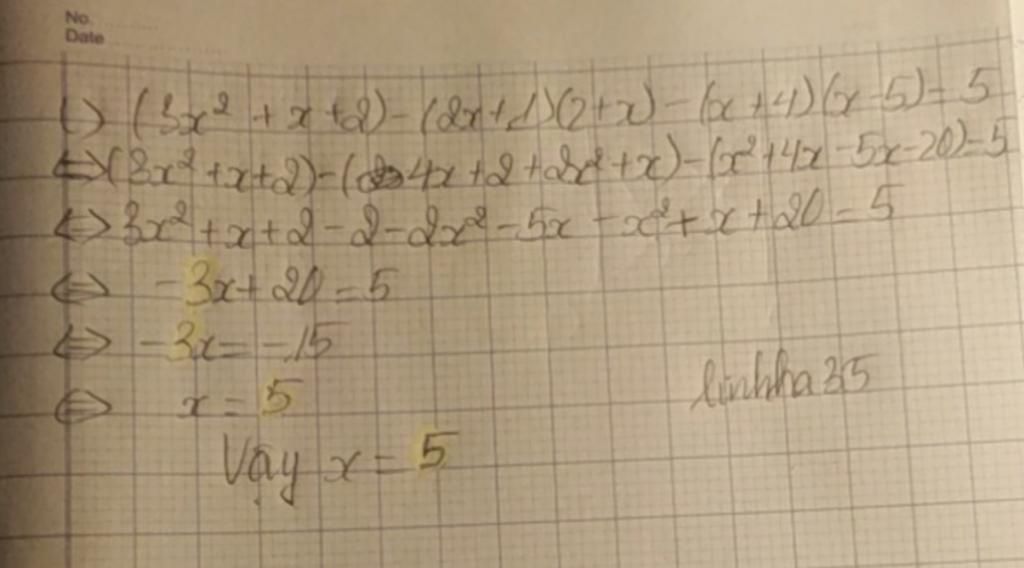 No.
Date
1) (3x² + x + 2) - (2x + 1)(2 + x) - (x + 4)(x - 5) = 5
⇔ (3x² + x + 2) - (4x + 2 + 2x² + x) - (x² + 4x - 5x - 20) = 5
⇔ 3x² + x + 2 - 2 - 2x² - 5x - x² + x + 20 = 5
⇔ -3x + 20 = 5
⇔ -3x = -15
⇔ x = 5
linhha35
Vậy x = 5